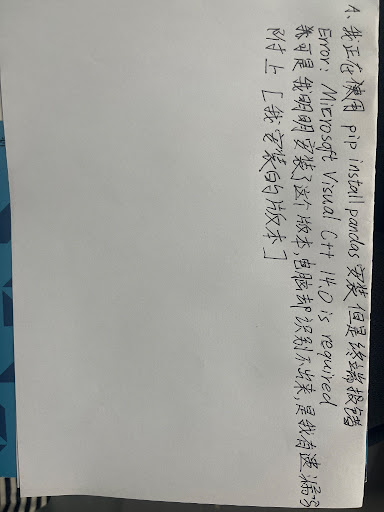 1、我正在使用 pip install pandas 安装,但是终端报错
Error: Microsoft Visual C++ 14.0 is required
我可是我明明安装了这个版本,电脑却识别不出来,是我有遗漏吗
附上 [我安装的版本]